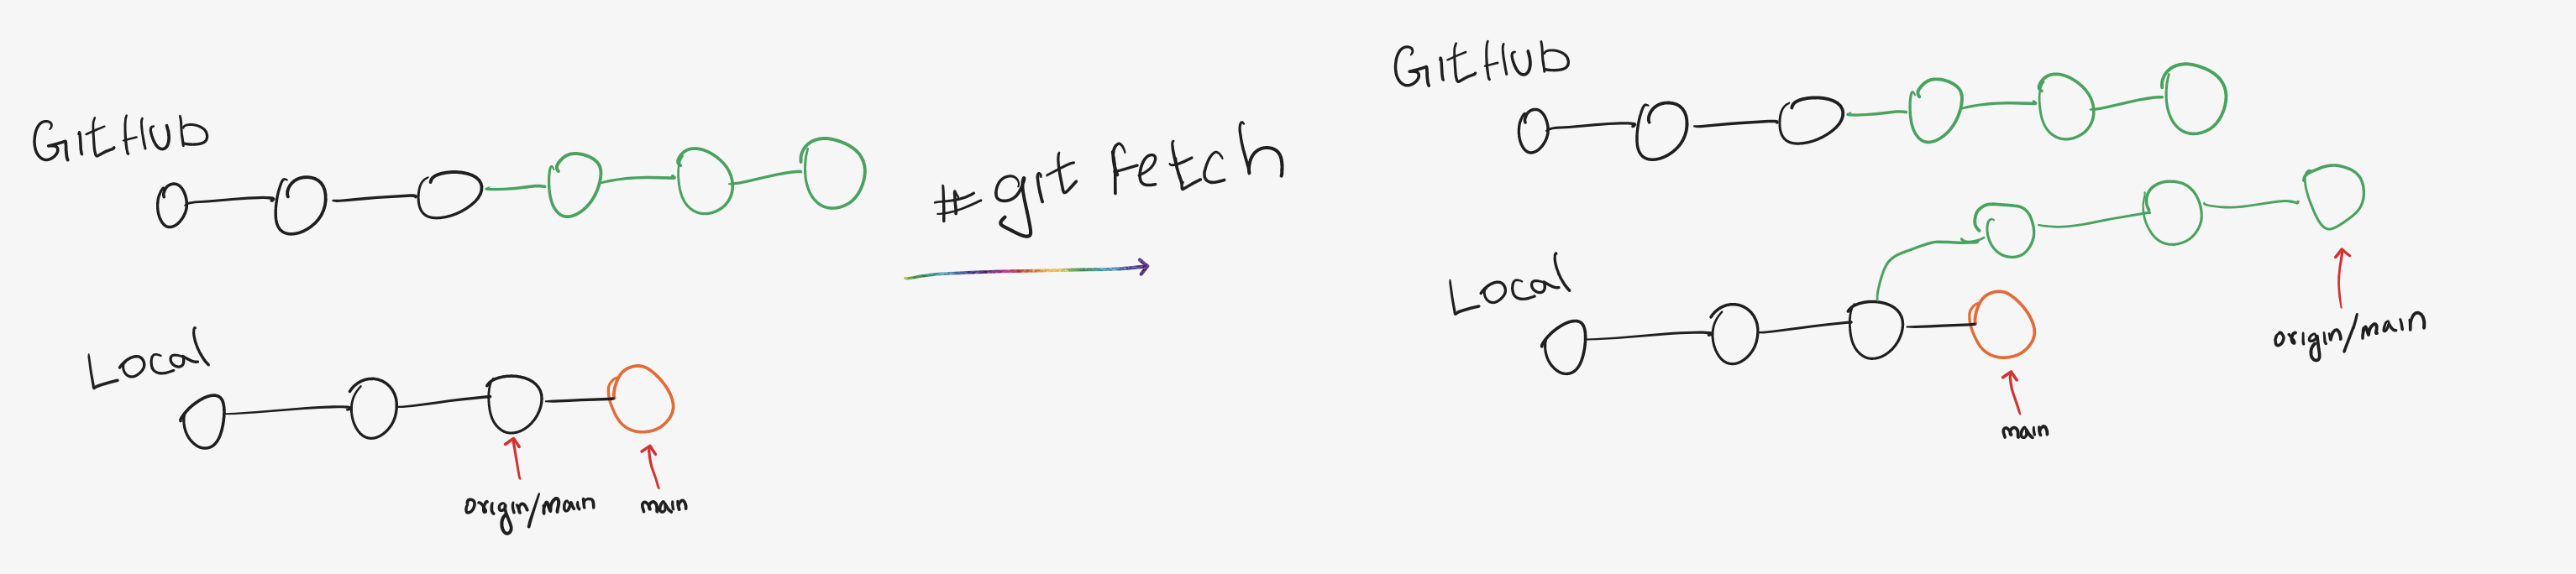 GitHub
Local
origin/main
main
#git fetch
GitHub
Local
origin/main
main